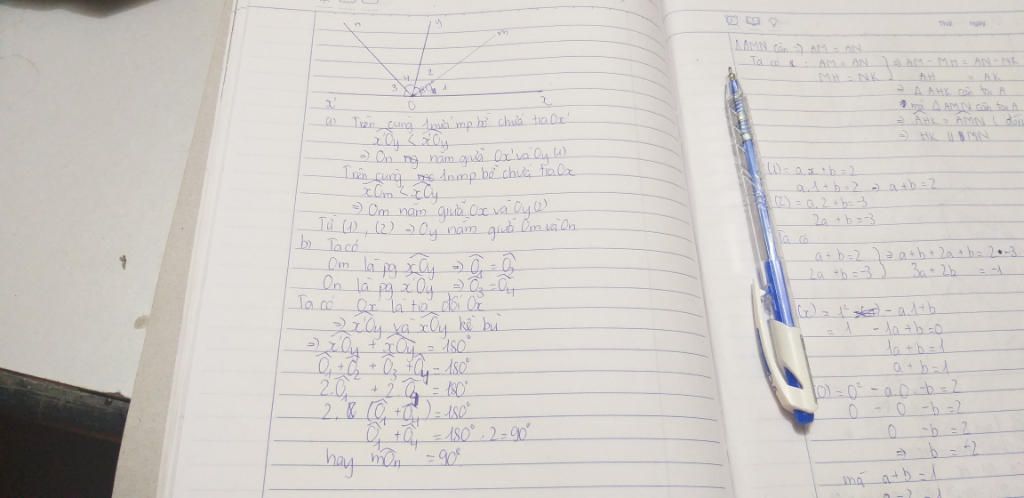 n
y
m
4
2
3
1
x'
O
x
a) Trên cùng 1 nửa mp bờ chứa tia Ox'
x'Oy < x'Oy
=> On nằm giữa Ox' và Oy (1)
Trên cùng 1nmp bờ chứa tia Ox
xOm < xOy
=> Om nằm giữa Ox và Oy (2)
Từ (1), (2) => Oy nằm giữa Om và On
b) Ta có
Om là pg xOy => O1 = O2
On là pg xOy => O3 = O4
Ta có Ox là tia đối Ox
=> x'Oy và xOy kề bù
=> x'Oy + xOy = 180°
O1 + O2 + O3 + O4 = 180°
2.O1 + 2.O4 = 180°
2. (O1 + O4) = 180°
O1 + O4 = 180° . 2 = 90°
hay mOn = 90°
Thứ Ngày
ΔAMN cân => AM = AN
Ta có : AM = AN } => AM - MH = AN - NK
MH = NK AH = AK
=> Δ AHK cân tại A
mà Δ AMN cân tại A
=> AHK = AMN ( đồng
=> HK // MN
(1) = a.x + b = 2
a.1 + b = 2 => a + b = 2
(2) = a.2 + b = -3
2a + b = -3
Ta có
a + b = 2 } => a + b + 2a + b = 2 + -3
2a + b = -3 3a + 2b = -1
(x) = 1² - a.1 + b
= 1 - 1a + b = 0
1a + b = 1
a + b = 1
(0) = 0² - a.0 - b = 2
0 - 0 - b = 2
0 - b = 2
=> b = -2
mà a + b = 1